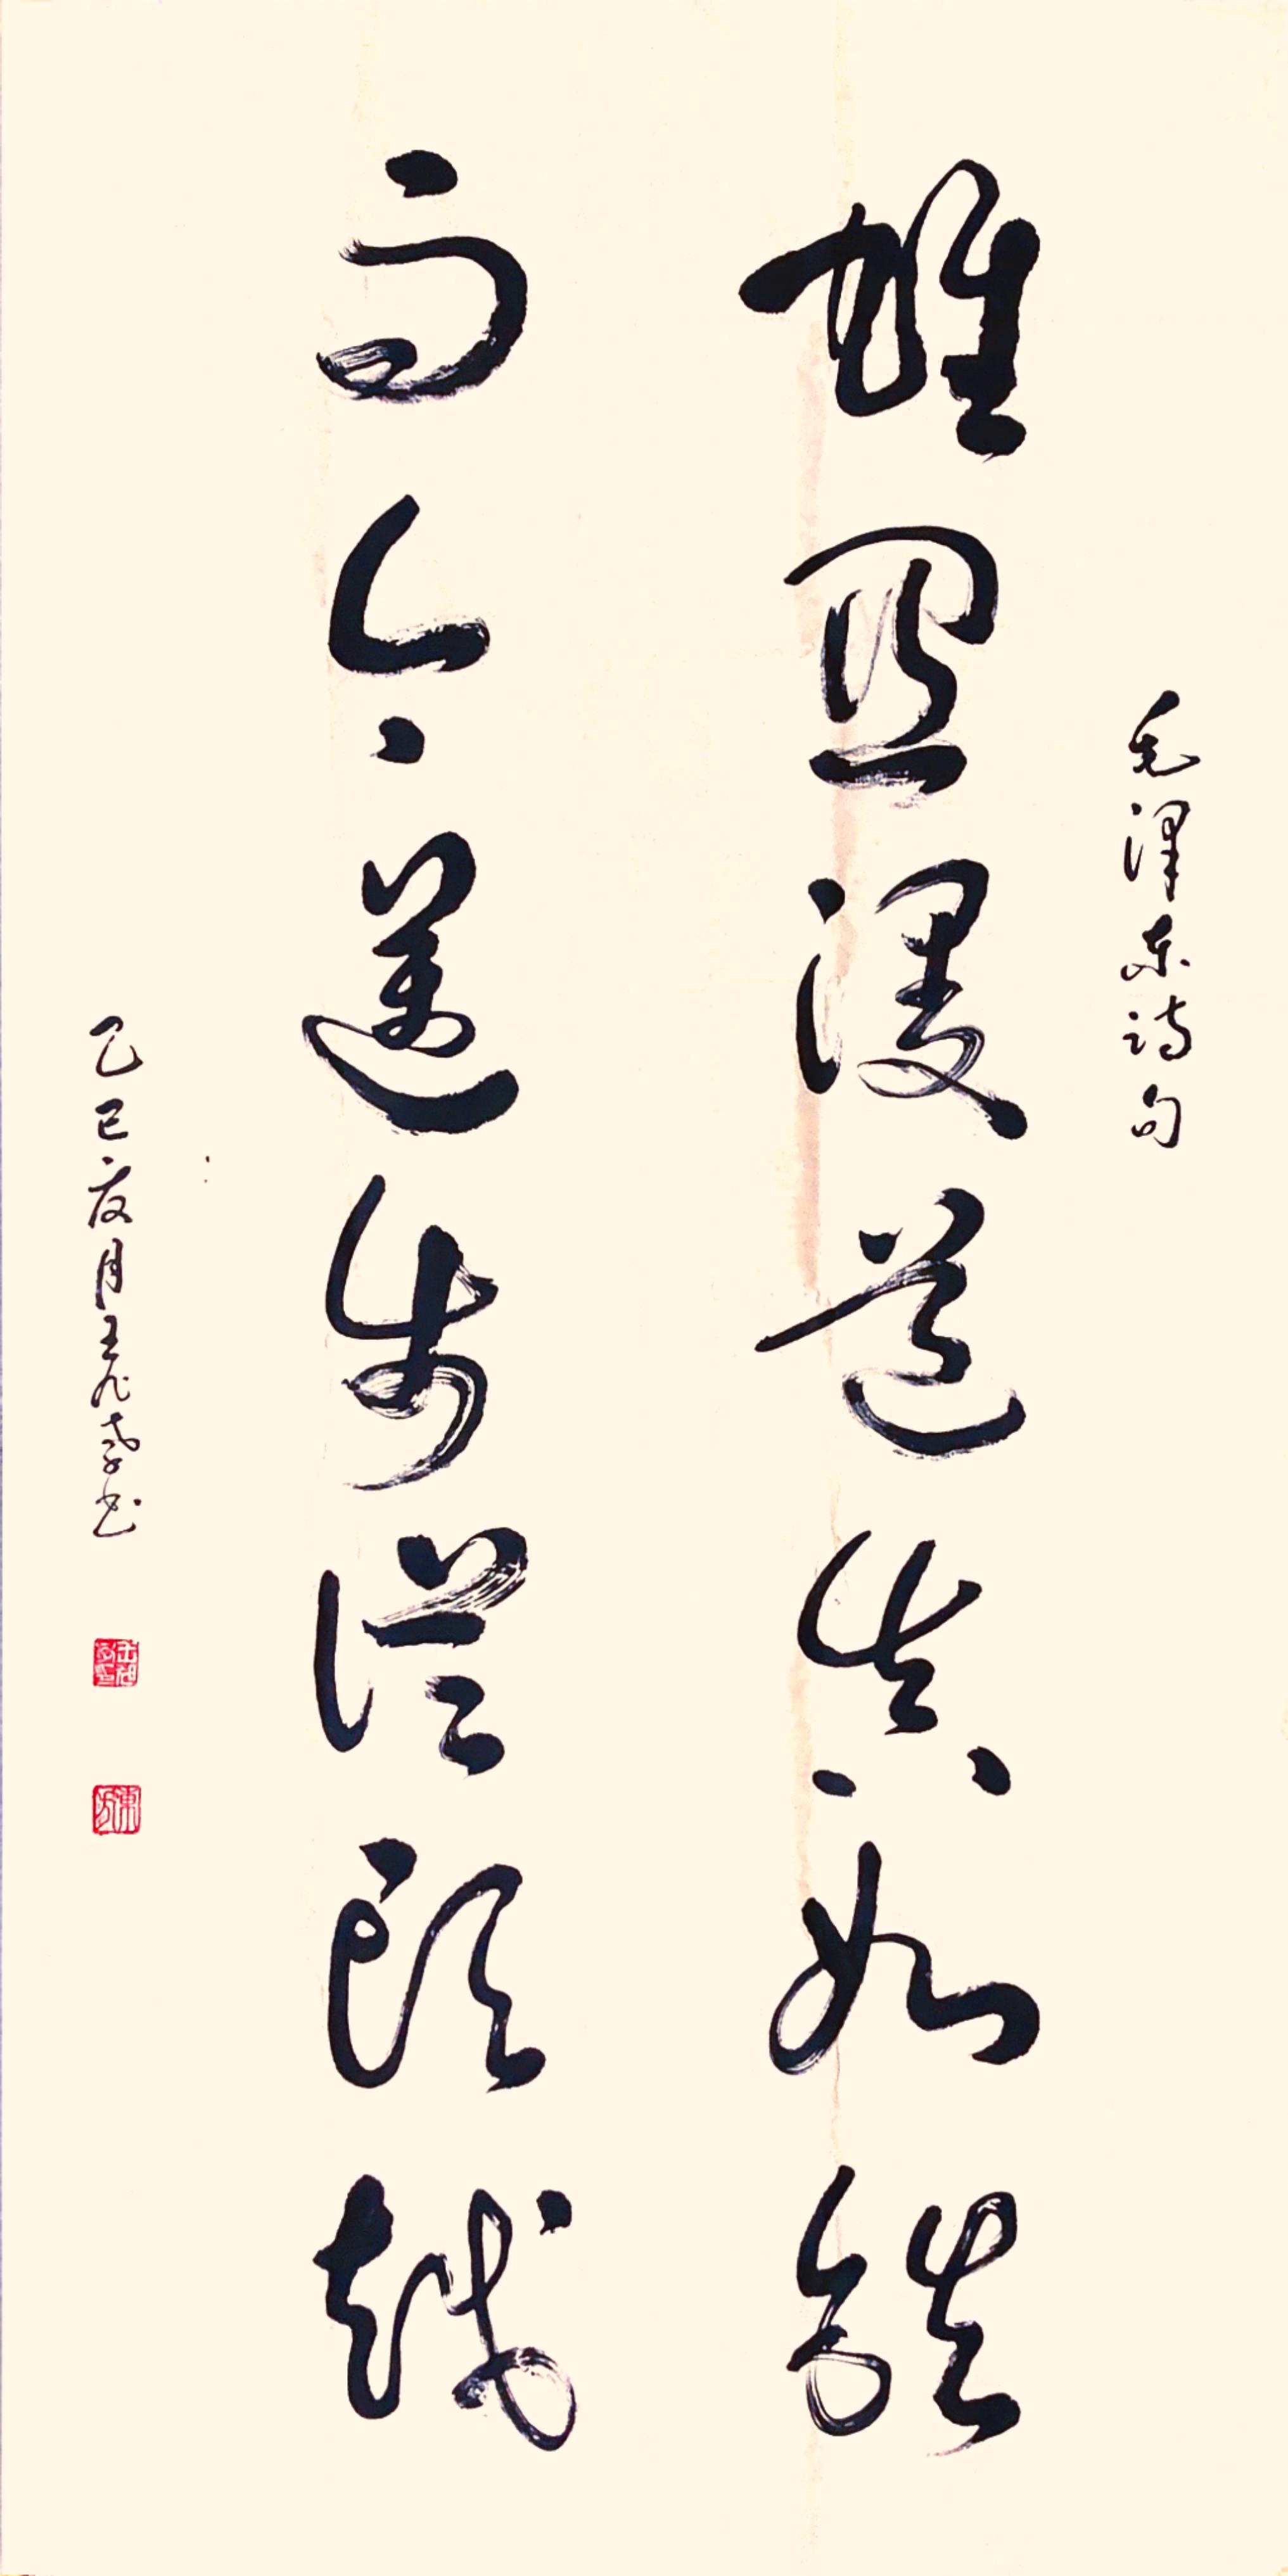 毛泽东诗句
雄关漫道真如铁
而今迈步从头越
乙巳夏月王
书